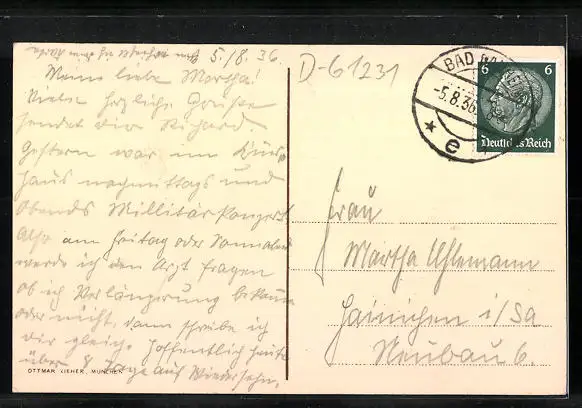 5./8.36.
Meine liebe Martha!
Viele herzliche Grüße
sendet dir Richard.
Gestern war im Kurs
haus nachmittags und
Abends Militärkonzert
Also am Freitag oder Sonnabend
werde ich den Arzt fragen
ob ich Verlängerung bekomme
oder nicht, dann schreibe ich
dir gleich. Hoffentlich heute
über 8 Tage auf Wiedersehn.
OTTMAR ZIEHER, MÜNCHEN
D-61231
BAD NAUHEIM
-5.8.36
* e
6 6
Deutsches Reich
Frau
Martha Uhlemann
Hainichen i/Sa
Neubau 6.